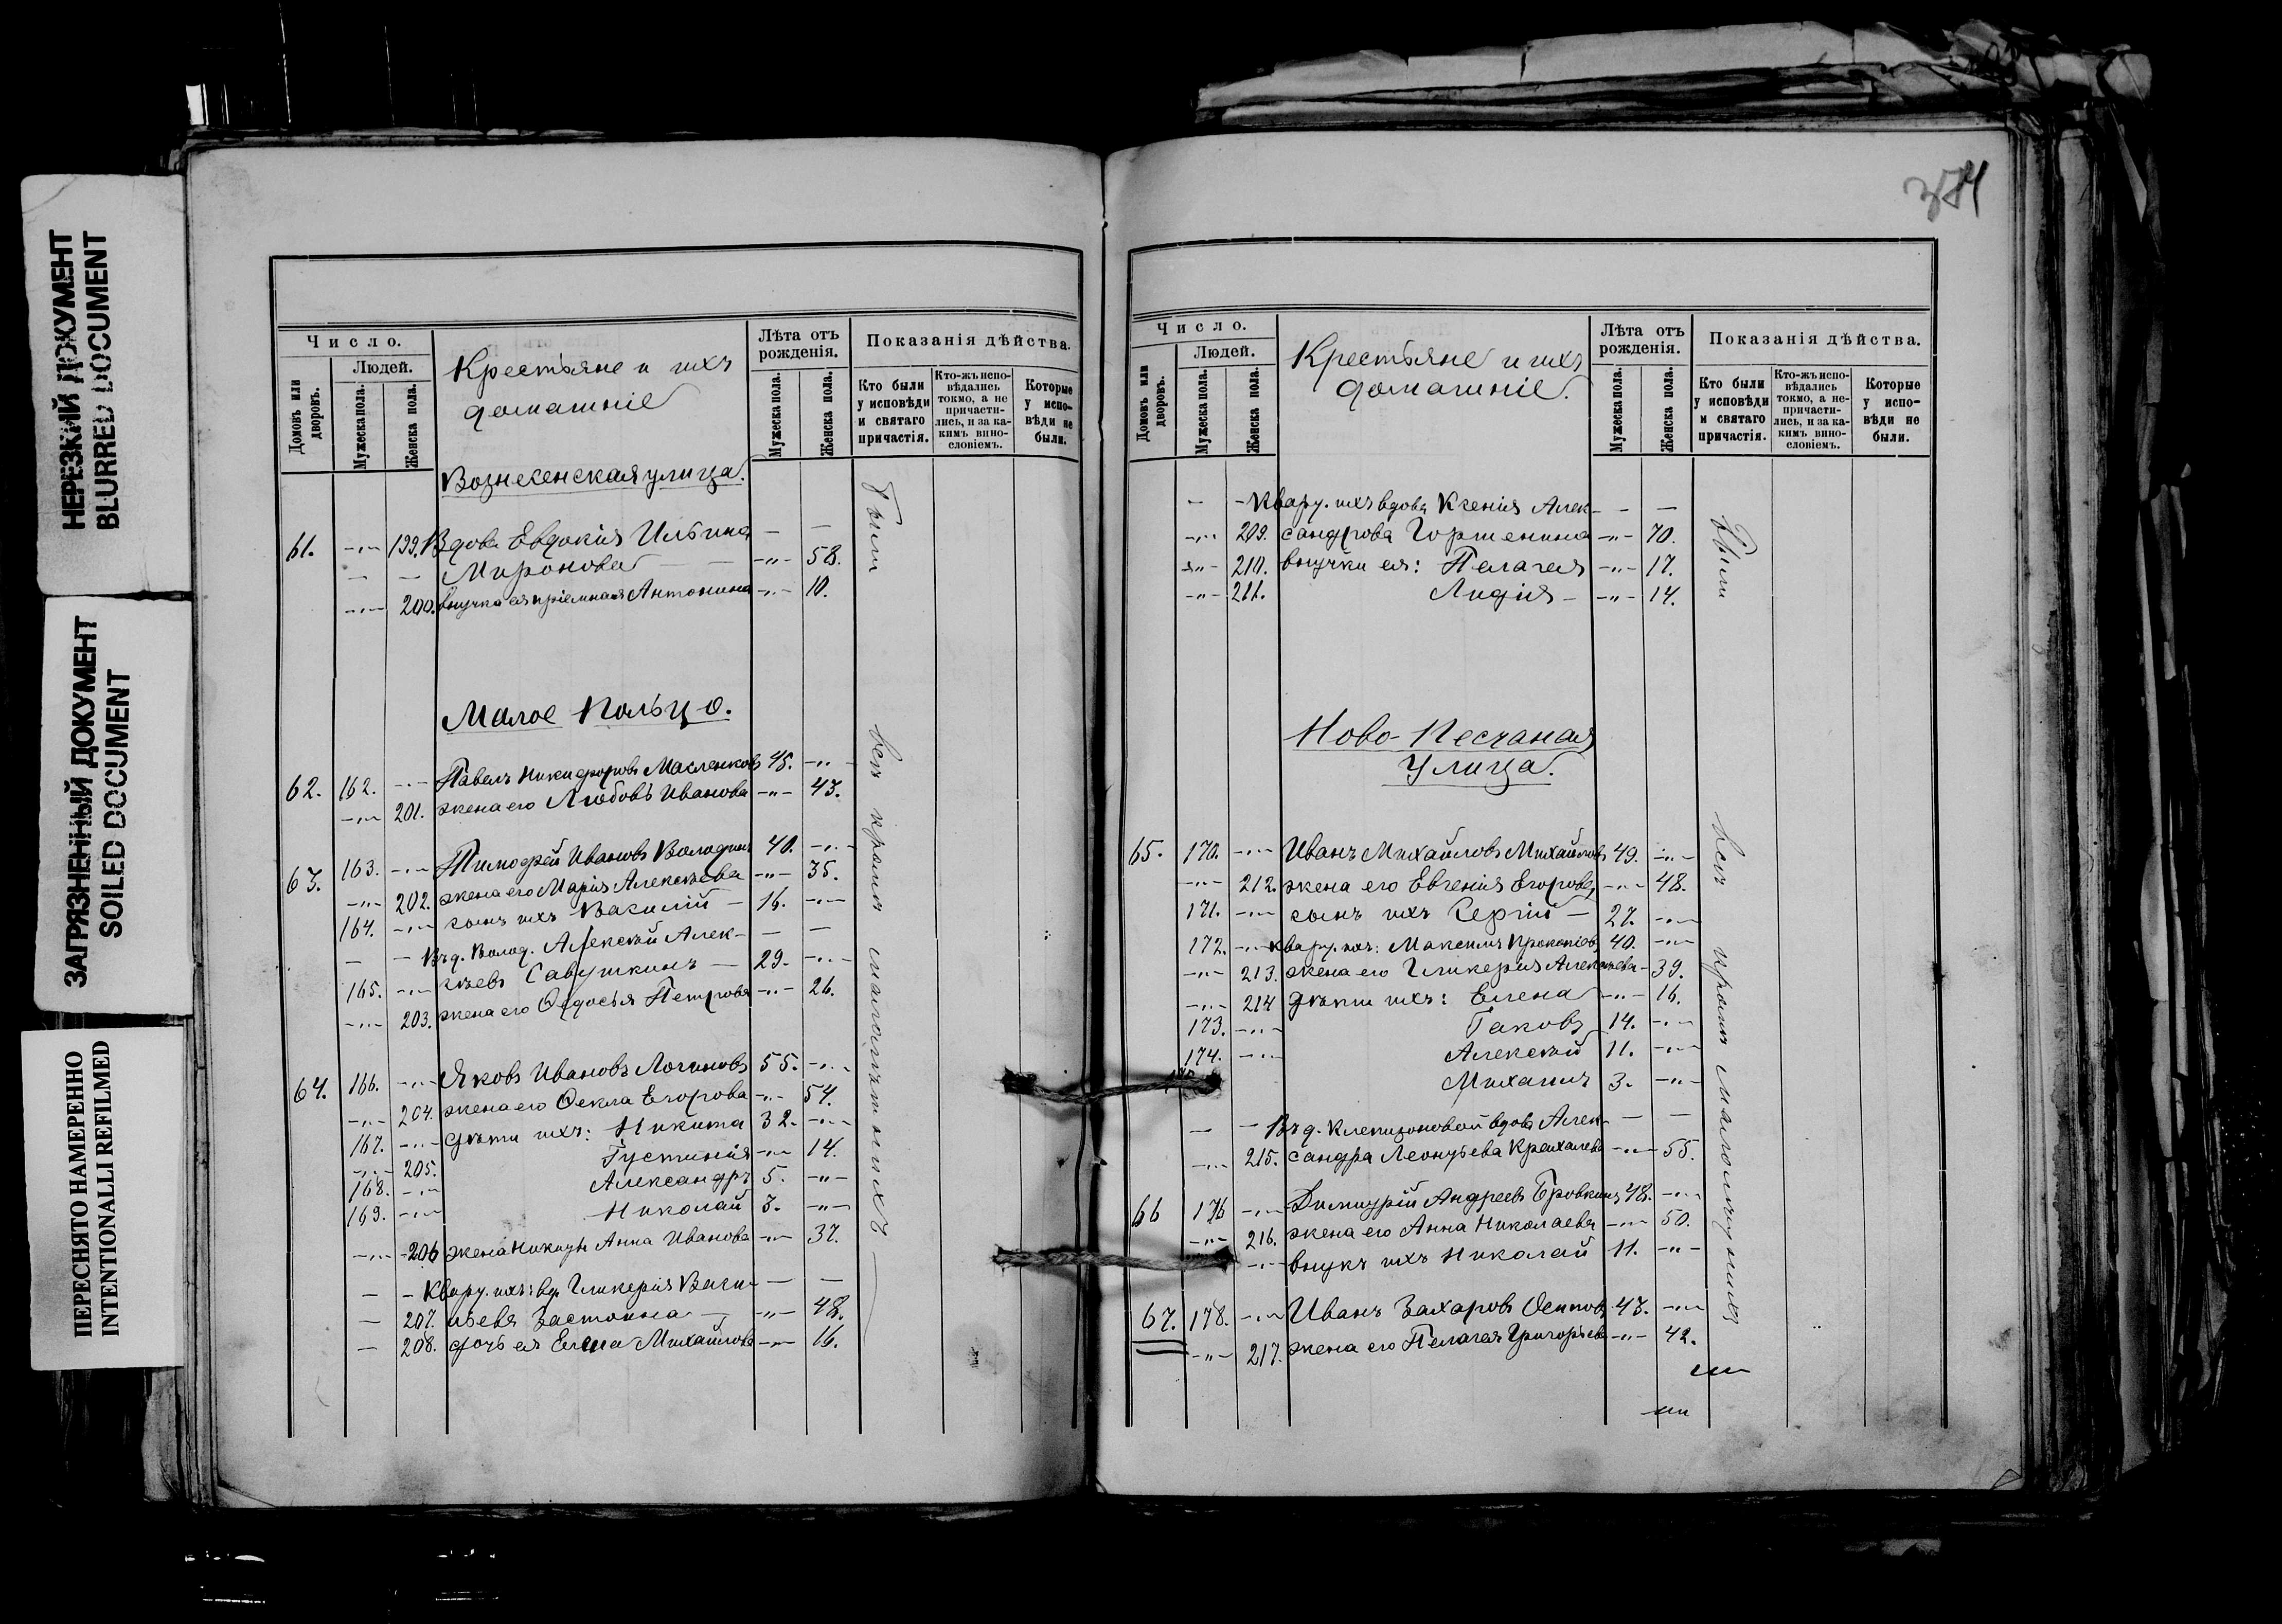 НЕРЕЗКИЙ ДОКУМЕНТ
BLURRED DOCUMENT
ЗАГРЯЗНЕННЫЙ ДОКУМЕНТ
SOILED DOCUMENT
ПЕРЕСНЯТО НАМЕРЕННО
INTENTIONALLI REFILMED
Число.
Домовъ или дворовъ.
Людей.
Мужеска пола.
Женска пола.
Крестьяне и ихъ
домашніе
Лѣта отъ рожденія.
Мужеска пола.
Женска пола.
Показанія дѣйства.
Кто были у исповѣди и святаго причастія.
Кто-жъ исповѣдались токмо, а не причастились, и за какимъ винословіемъ.
Которые у исповѣди не были.
Вознесенская улица.
61. -„- 199. Вдова Евдокія Ильина — —
— — Миронова -„- 58.
-„- 200. внучка ея пріемная Антонина -„- 10.
были
Малое Кольцо.
62. 162. -„- Павелъ Никифоровъ Масленковъ 45. -„-
-„- 201. жена его Любовь Иванова -„- 43.
63. 163. -„- Тимофей Ивановъ Володинъ 40. -„-
-„- 202. жена его Марія Алексѣева -„- 35.
164. -„- сынъ ихъ Василій — 16. -„-
— — Въ д. Волод. Алексѣй Алек- — —
165. -„- сѣевъ Савушкинъ — 29. -„-
-„- 203. жена его Ѳедосья Петрова -„- 26.
64. 166. -„- Яковъ Ивановъ Логиновъ 55. -„-
-„- 204. жена его Ѳекла Егорова -„- 54.
167. -„- дѣти ихъ: Никита 32. -„-
-„- 205. Густинія -„- 14.
168. -„- Александръ 5. -„-
169. -„- Николай 3. -„-
-„- 206 жена Никиты Анна Иванова -„- 37.
— — Кварт. ихъ: вд. Гликерія Васи- — —
— 207. льева Застоина — -„- 48.
— 208. дочь ея Елена Михайлова -„- 16.
всѣ кромѣ малолѣтнихъ
374
Число.
Домовъ или дворовъ.
Людей.
Мужеска пола.
Женска пола.
Крестьяне и ихъ
домашніе.
Лѣта отъ рожденія.
Мужеска пола.
Женска пола.
Показанія дѣйства.
Кто были у исповѣди и святаго причастія.
Кто-жъ исповѣдались токмо, а не причастились, и за какимъ винословіемъ.
Которые у исповѣди не были.
— — Кварт. ихъ вдова Ксенія Алек- — —
-„- 209. сандрова Горшенина -„- 70.
-„- 210. внучки ея: Пелагея -„- 17.
-„- 211. Лидія — -„- 14.
были
Ново-Песчаная
Улица.
65. 170. -„- Иванъ Михайловъ Михайловъ 49. -„-
-„- 212. жена его Евгенія Егорова -„- 48.
171. -„- сынъ ихъ Сергій — 27. -„-
172. -„- Кварт. ихъ: Максимъ Прокопіевъ 40. -„-
-„- 213. жена его Гликерія Алексѣева - 39.
-„- 214 дѣти ихъ: Елена -„- 16.
173. -„- Іаковъ 14. -„-
174. -„- Алексѣй 11. -„-
Михаилъ 3. -„-
— — Въ д. вдова Алек- — —
-„- 215. сандра Леонтьева -„- 55.
66 176 -„- Димитрій Андреевъ Бровкинъ 48. -„-
-„- 216. жена его Анна Николаева -„- 50.
-„- внукъ ихъ Николай 11. -„-
67. 178. -„- Иванъ Захаровъ Осиповъ 43. -„-
-„- 217. жена его Пелагея Григорьева -„- 42.
всѣ кромѣ малолѣтнихъ